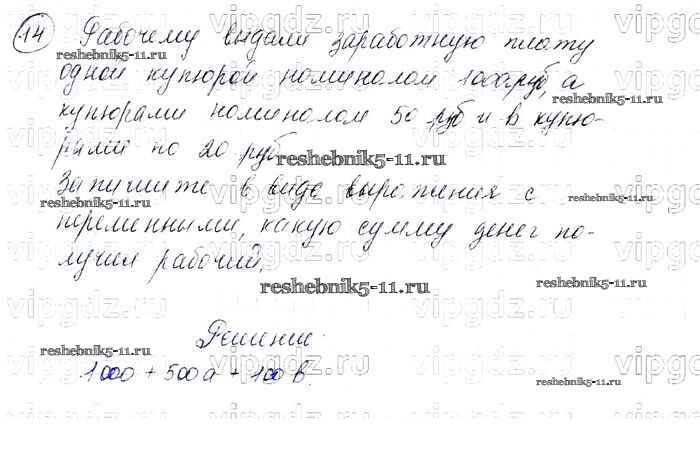 14 Рабочему выдали заработную плату
одной купюрой номиналом 1000 руб, а
купюрами номиналом 50 руб и в купю-
рами по 20 руб
Запишите в виде выражения с
переменными, какую сумму денег по-
лучил рабочий.
Решение:
1000 + 500а + 100в.
vipgdz.ru
reshebnik5-11.ru